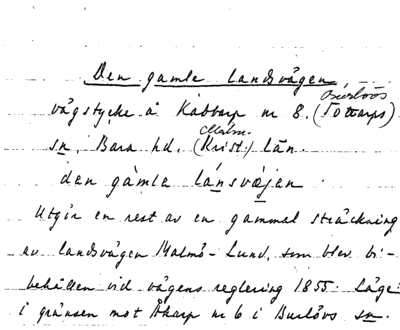 Den gamle landsvägen,
Burlövs
vägstycke å Kabbarp nr 8. (Tottarps)
Malm.
sn, Bara hd. (Krist.) län.
den gàmle lánsvæjen
Utgör en rest av en gammal sträckning
av landsvägen Malmö - Lund, som blev bi-
behållen vid vägens reglering 1855. Läge:
i gränsen mot Åkarp nr 6 i Burlövs sn.